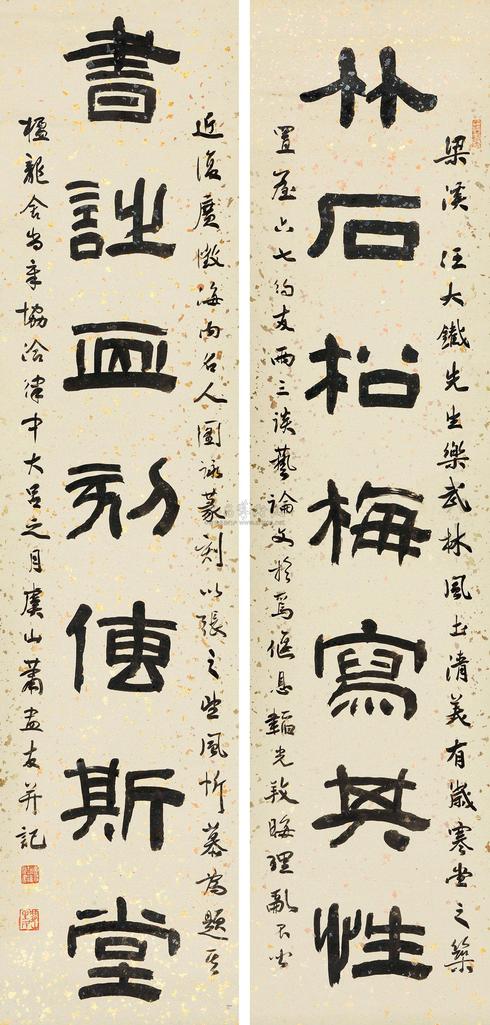 竹石松梅寫其性
梁溪汪大鐵先生樂武林風土清美有歲寒堂之築
置屋六七約友兩三談藝論文於焉偃息韜光晦理亂不聞
書詩畫刻傳斯堂
近復廣徵海內名人圖詠篆刻以張之望風忻慕為題其
楹龍舍尚章協洽律中大呂之月虞山蕭盅友并記